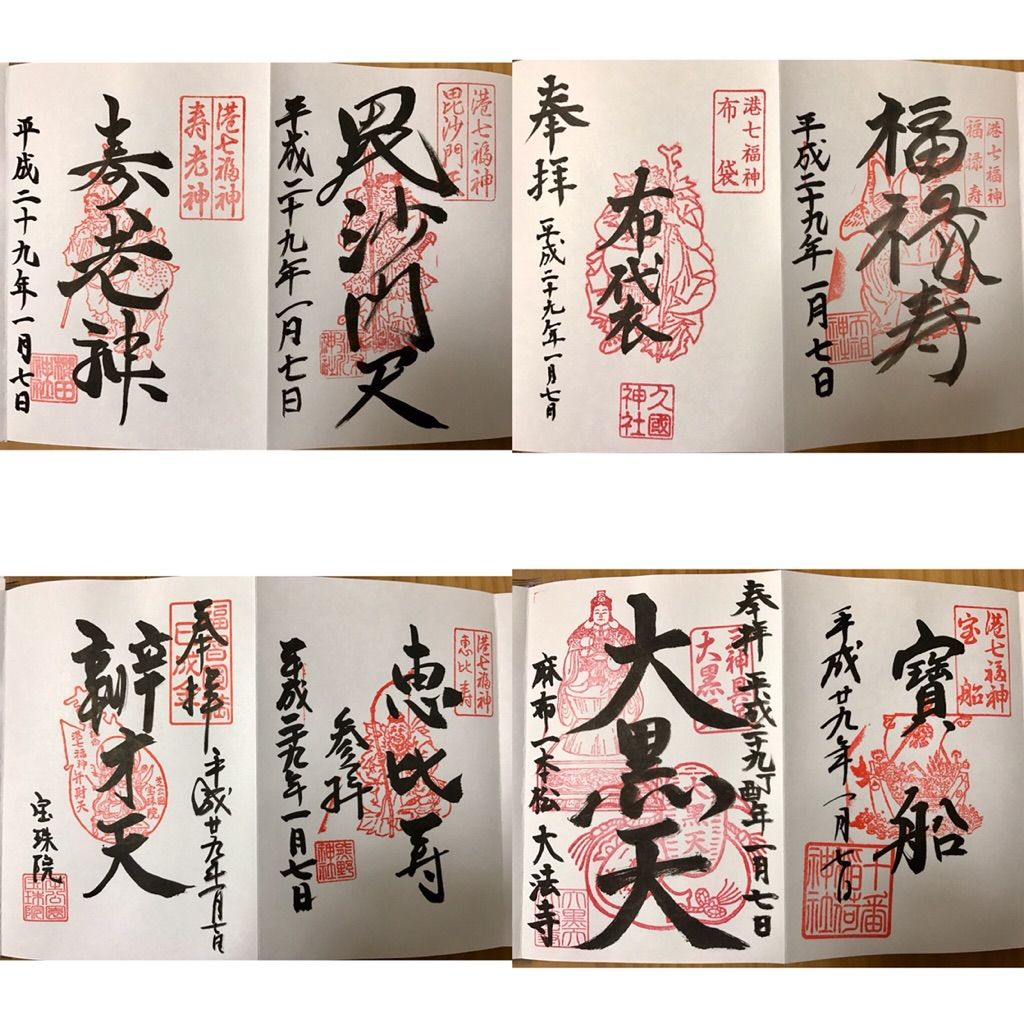 港七福神
寿老神
寿老神
平成二十九年一月七日
櫻田
神社
港七福神
毘沙門天
毘沙門天
平成二十九年一月七日
港七福神
布袋
奉拝
布袋
平成二十九年一月七日
久國
神社
港七福神
福禄寿
福禄寿
平成二十九年一月七日
天祖
神社
奉拝
平成廿九年一月七日
辨才天
港七福神弁財天
宝珠院
港七福神
恵比寿
恵比寿
参拝
平成二十九年一月七日
熊野
神社
奉拝 平成二十九丁酉年一月七日
大黒天
大黒天
麻布一本松 大法寺
港七福神
宝船
寳船
平成廿九年一月七日
十番
稲荷
神社